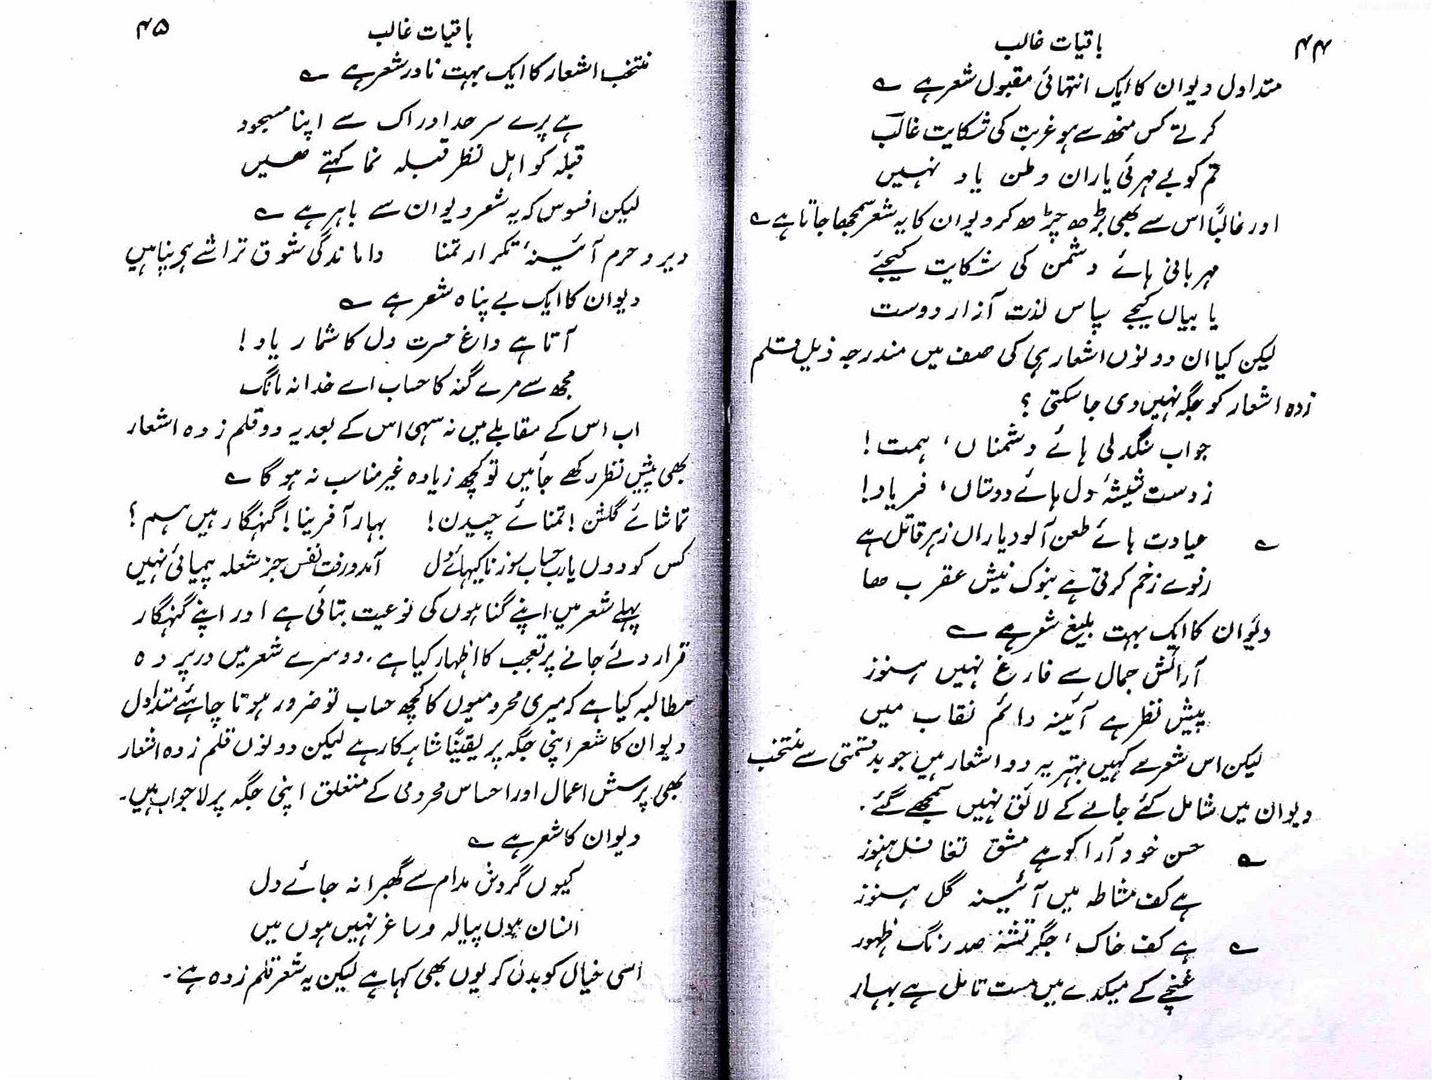 ۴۴
باقیات غالب
متداول دیوان کا ایک انتہائی مقبول شعر ہے ؎
کرتے کس منھ سے ہو غربت کی شکایت غالب
تم کو بے مہریٔ یاران وطن یاد نہیں
اور غالباً اس سے بھی بڑھ چڑھ کر دیوان کا یہ شعر سمجھا جاتا ہے ؎
مہربانی ہائے دشمن کی شکایت کیجئے
یا بیاں کیجے سپاس لذت آزار دوست
لیکن کیا ان دونوں اشعار ہی کی صف میں مندرجہ ذیل قلم
زدہ اشعار کو جگہ نہیں دی جا سکتی ؟
جواب سنگدلی ہائے دشمناں، ہمت!
زدست شیشۂ دل ہائے دوستاں، فریاد!
؎ عیادت ہائے طعن آلود یاراں زہر قاتل ہے
رفوے زخم کرتی ہے بنوک نیش عقرب ہا
دیوان کا ایک بہت بلیغ شعر ہے ؎
آرائش جمال سے فارغ نہیں ہنوز
پیش نظر ہے آئینہ دائم نقاب میں
لیکن اس شعر سے کہیں بہتر یہ دو اشعار ہیں جو بدقسمتی سے منتخب
دیوان میں شامل کئے جانے کے لائق نہیں سمجھے گئے.
؎ حسن خود آرا کو ہے مشق تغافل ہنوز
ہے کف مشاطہ میں آئینہ گل ہنوز
؎ ہے کف خاک، جگر تشنۂ صد رنگ ظہور
غنچے کے میکدے میں مست تامل ہے بہار
باقیات غالب
۴۵
منتخب اشعار کا ایک بہت نادر شعر ہے ؎
ہے پرے سرحد ادراک سے اپنا مسجود
قبلہ کو اہل نظر قبلہ نما کہتے ہیں
لیکن افسوس کہ یہ شعر دیوان سے باہر ہے ؎
دیر و حرم آئینۂ تکرار تمنا واماندگی شوق تراشے ہے پناہیں
دیوان کا ایک بے پناہ شعر ہے ؎
آتا ہے داغ حسرت دل کا شمار یاد!
مجھ سے مرے گنہ کا حساب اے خدا نہ مانگ
اب اس کے مقابلے میں نہ سہی اس کے بعد یہ دو قلم زدہ اشعار
بھی پیش نظر رکھے جائیں تو کچھ زیادہ غیر مناسب نہ ہو گا ؎
تماشائے گلشن! تمنائے چیدن! بہار آفرینا! گنہگار ہیں ہم؟
کس کو دوں یارب حساب سوزنا کیہائے دل آمد و رفت نفس جز شعلہ پیمائی نہیں
پہلے شعر میں اپنے گناہوں کی نوعیت بتائی ہے اور اپنے گنہگار
قرار دئے جانے پر تعجب کا اظہار کیا ہے. دوسرے شعر میں در پردہ
مطالبہ کیا ہے کہ میری محرومیوں کا کچھ حساب تو ضرور ہونا چاہئے متداول
دیوان کا شعر اپنی جگہ پر یقیناً شاہکار ہے لیکن دونوں قلم زدہ اشعار
بھی پرسش اعمال اور احساس محرومی کے متعلق اپنی جگہ پر لاجواب ہیں۔
دیوان کا شعر ہے ؎
کیوں گردش مدام سے گھبرا نہ جائے دل
انسان ہوں پیالہ و ساغر نہیں ہوں میں
اسی خیال کو بدل کر یوں بھی کہا ہے لیکن یہ شعر قلم زدہ ہے۔